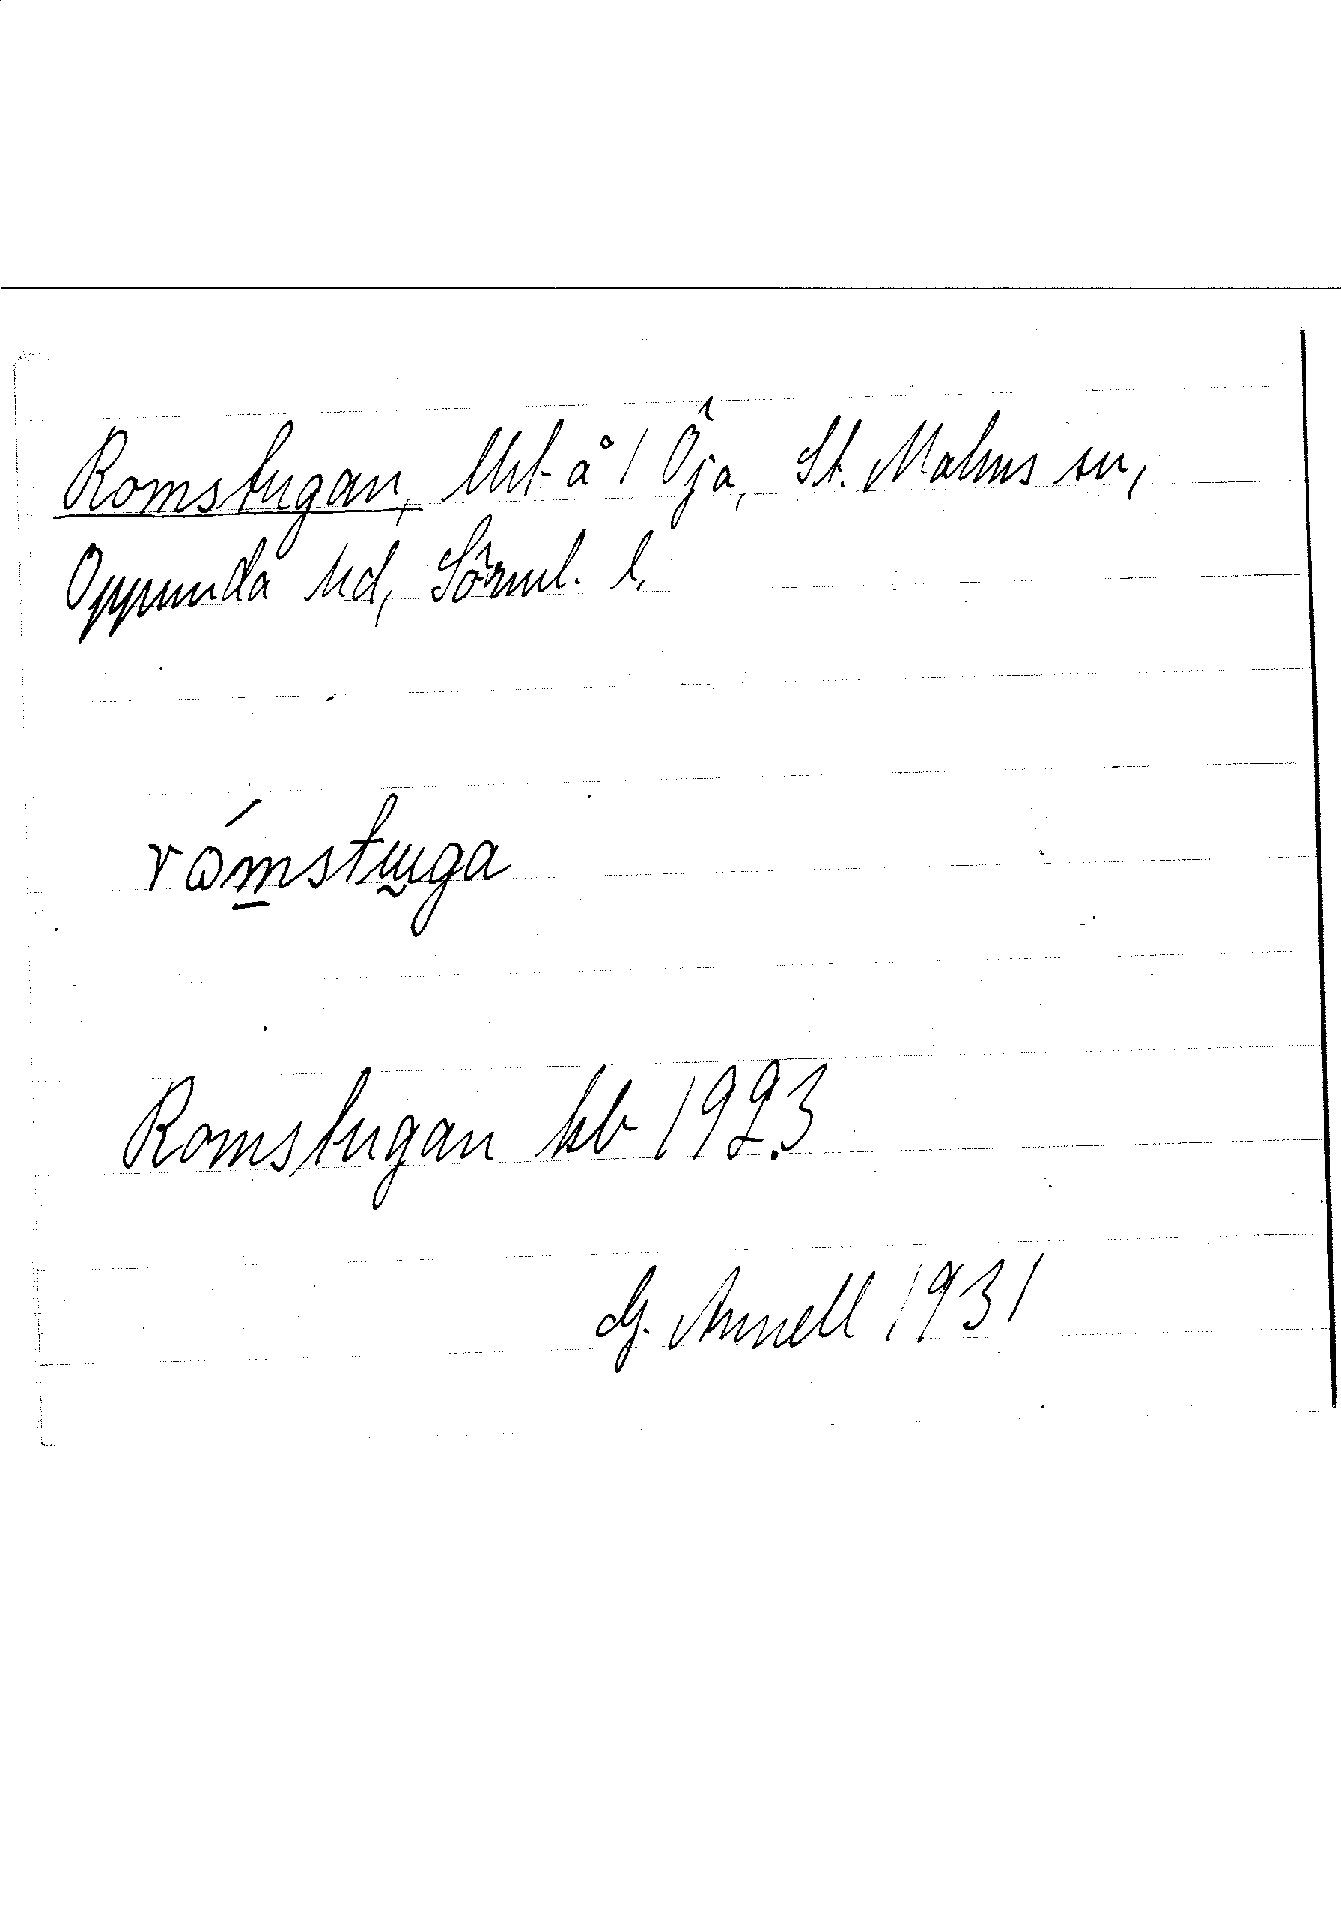 Romstugan, lht å 1 Öja, St. Malms sn,
Oppunda hd, Sörml. l.
rωmstuga
Romstugan kb 1923
G. Annell 1931